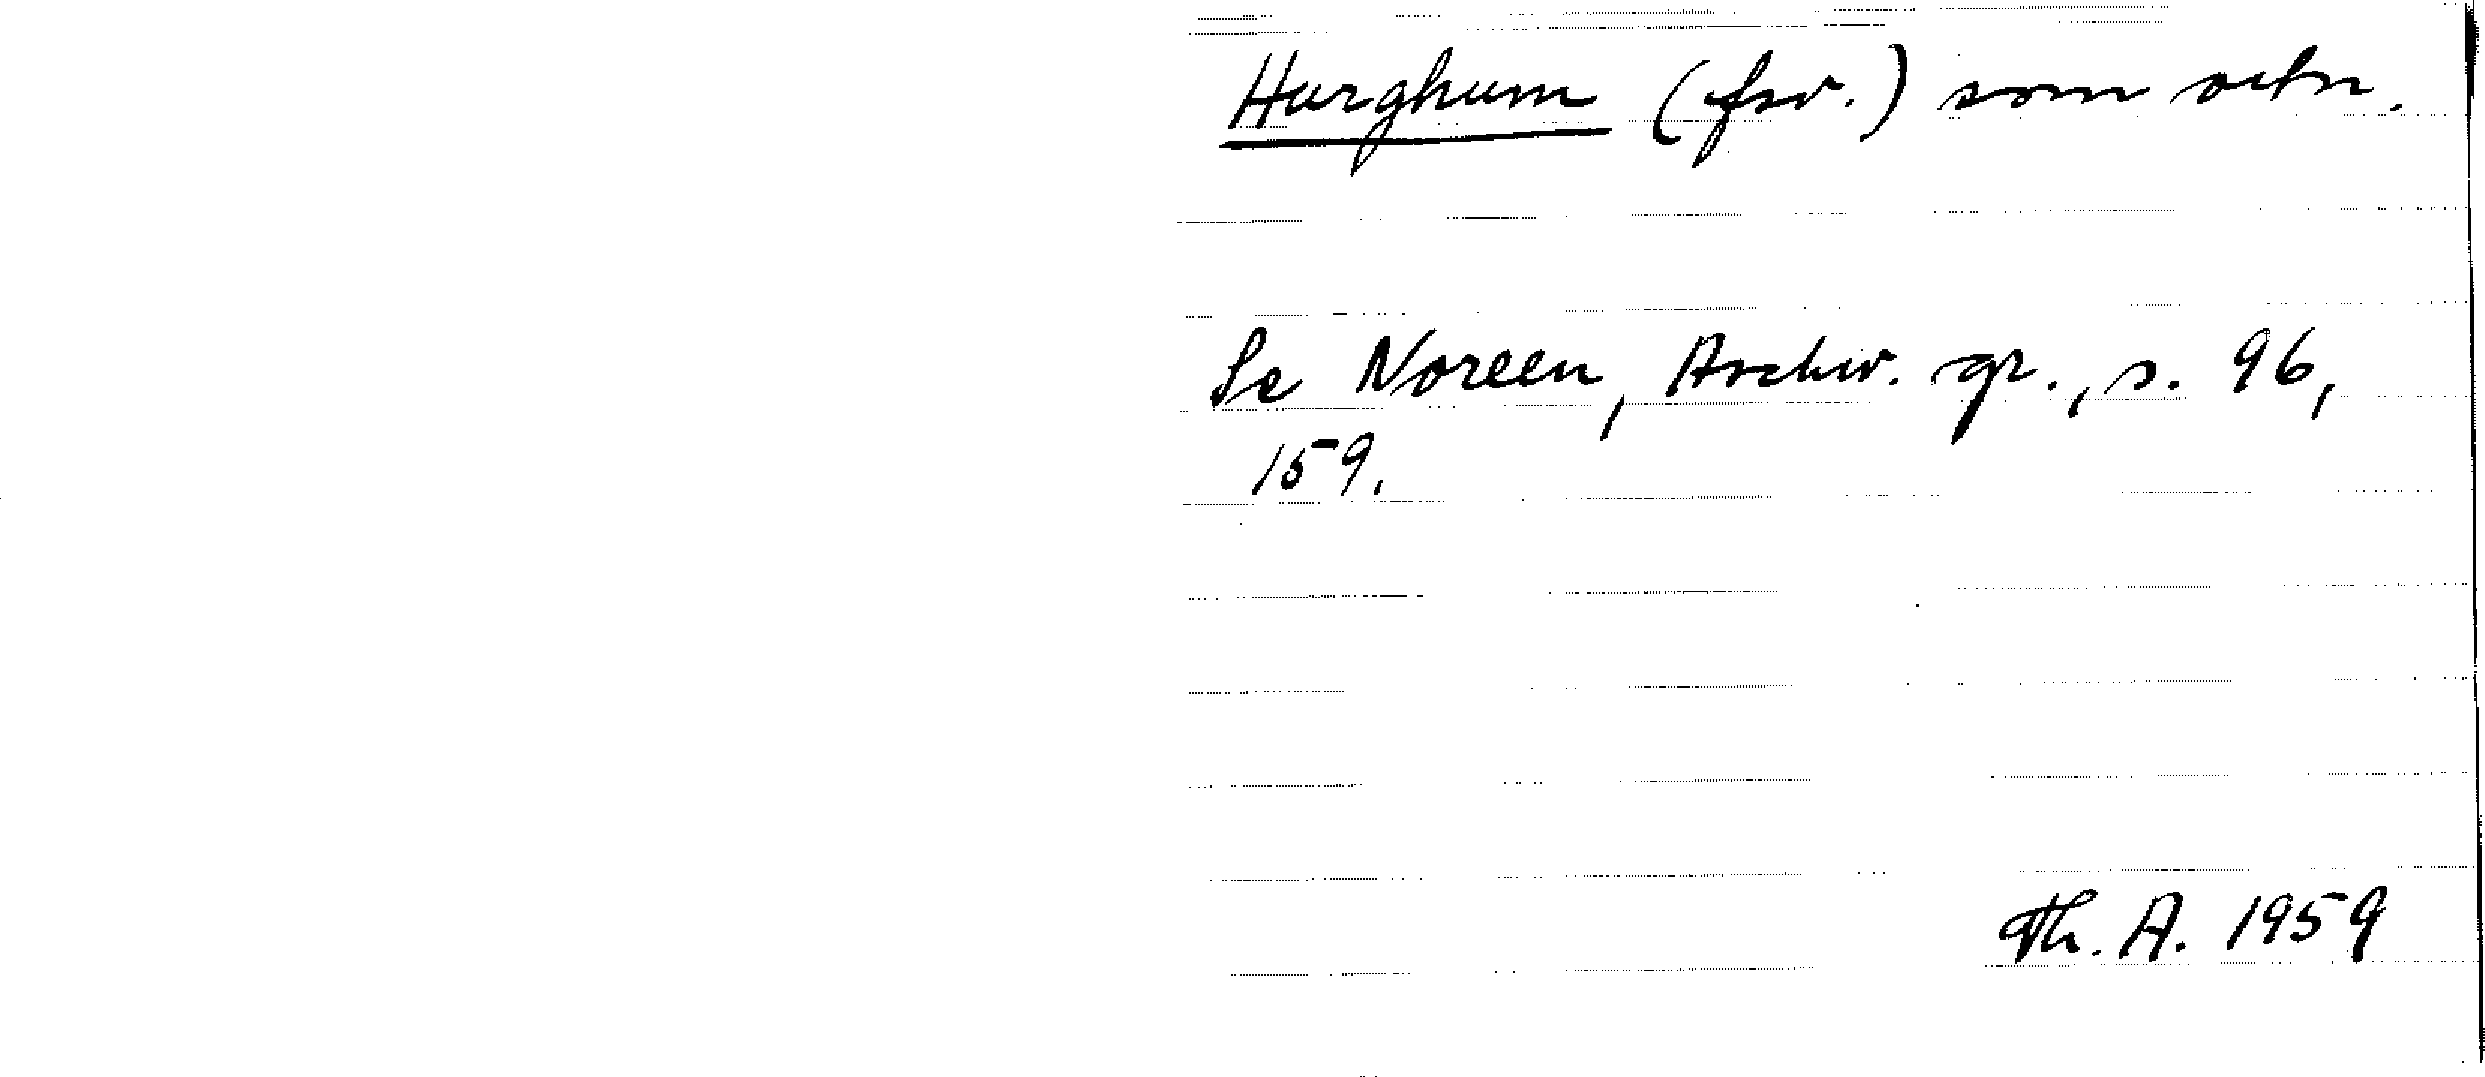 Harghum (fsv.) som ortn.
Se Noreen, Aschw. gr., s. 96,
159.
Th. A. 1959